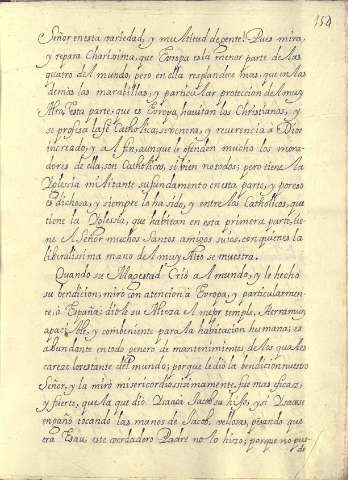 154
Señor en esta variedad, y multitud de gente! Pues mira,
y repara Charissima, que Europa es la menor parte de las
quatro del mundo, pero en ella resplandece mas, que en las
demás las marabillas, y particular protección del muy
Alto, Esta parte, que es Europa, havitan los Christianos, y
se profesa la fè Catholica, se venera, y reverencia a Dios
increado, y al fin, aunque le ofenden mucho los mora-
dores de ella, son Catholicos, si bien no todos; pero tiene la
Yglesia militante su fundamento en esta parte, y por eso
es dichosa, y siempre lo ha sido, y entre los Catholicos, que
tiene la Yglesia, que habitan en esta primera parte, tie-
ne el Señor muchos Santos amigos suios, con quienes la
liberalissima mano del muy Alto se muestra.
Quando su Magestad Criò al mundo, y le hechò
su bendicion, mirò con atencion à Europa, y particularmen-
te, à España; diòla su Alteza el mejor temple, tierra muy
apacible, y combeniente para la habitacion humana; es
abundante en todo genero de mantenimientos, de los quales
careze lo restante del mundo; porque le diò la bendicion nuestro
Señor, y la mirò misericordiosissimamente, fue mas eficaz,
y fuerte, que la que diò Ysaac a Jacob su hijo, y si Ysaac se
engañò tocando las manos de Jacob, vellosas, pesando que
era Esau, este verdadero Padre no lo hizo; porque no pue-
de